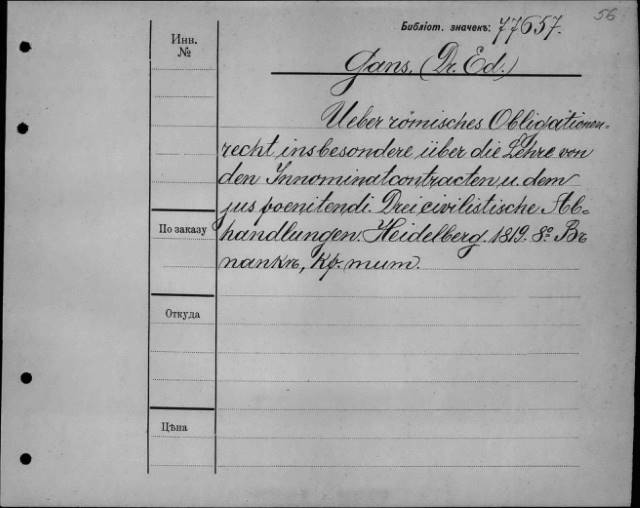 56
Библіот. значекъ: 77657.
Инн.
№
Gans, (Dr. Ed.)
Ueber römisches Obligationen-
recht insbesondere über die Lehre von
den Innominatcontracten u. dem
jus poenitendi. Drei civilistische Ab-
handlungen. Heidelberg. 1819. 8º. Въ
По заказу
папкѣ, кр. тит.
Откуда
Цѣна